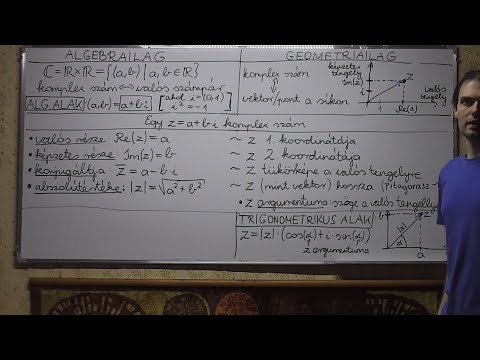 ALGEBRAILAG
ℂ=ℝ×ℝ={(a,b) | a,b∈ℝ}
komplex szám ⟺ valós számpár
ALG. ALAK (a,b)=a+b·i [ahol i=(0,1) i²=-1]
GEOMETRIAILAG
komplex szám
⇕
vektor/pont a síkon
képzetes tengely
Im(z)
z
1
1
Re(z)
valós tengely
Egy z=a+b·i komplex szám
• valós része: Re(z)=a
~ z 1. koordinátája
• képzetes része: Im(z)=b
~ z 2. koordinátája
• konjugáltja: z̅=a-b·i
~ z tükörképe a valós tengelyre
• abszolútértéke: |z|=√a²+b²
~ z (mint vektor) hossza (Pitagorasz
• z argumentuma: szöge a valós tengellyel
TRIGONOMETRIKUS ALAK
z=|z|·(cos(α)+i·sin(α))
z argumentuma
b
z
|z|
α
a